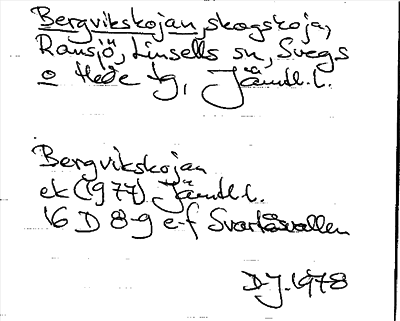 Bergvikskojan, skogskoja,
Ransjö, Linsells sn, Svegs
o Hede tg, Jämtl. l.
Bergvikskojan
ek (1977) Jämtl. l.
16 D 8-9 e-f Svartåsvallen
D-J. 1978